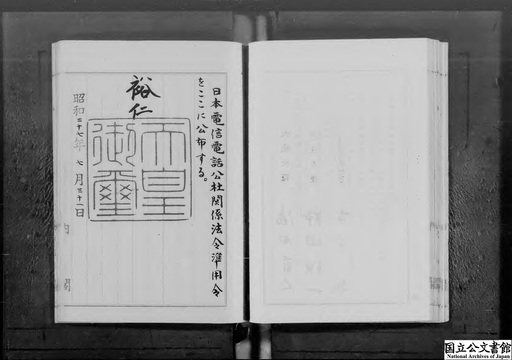 日本電信電話公社関係法令準用令
をここに公布する。
裕仁
天皇
御璽
昭和二十七年七月三十一日
内閣
国立公文書館
National Archives of Japan